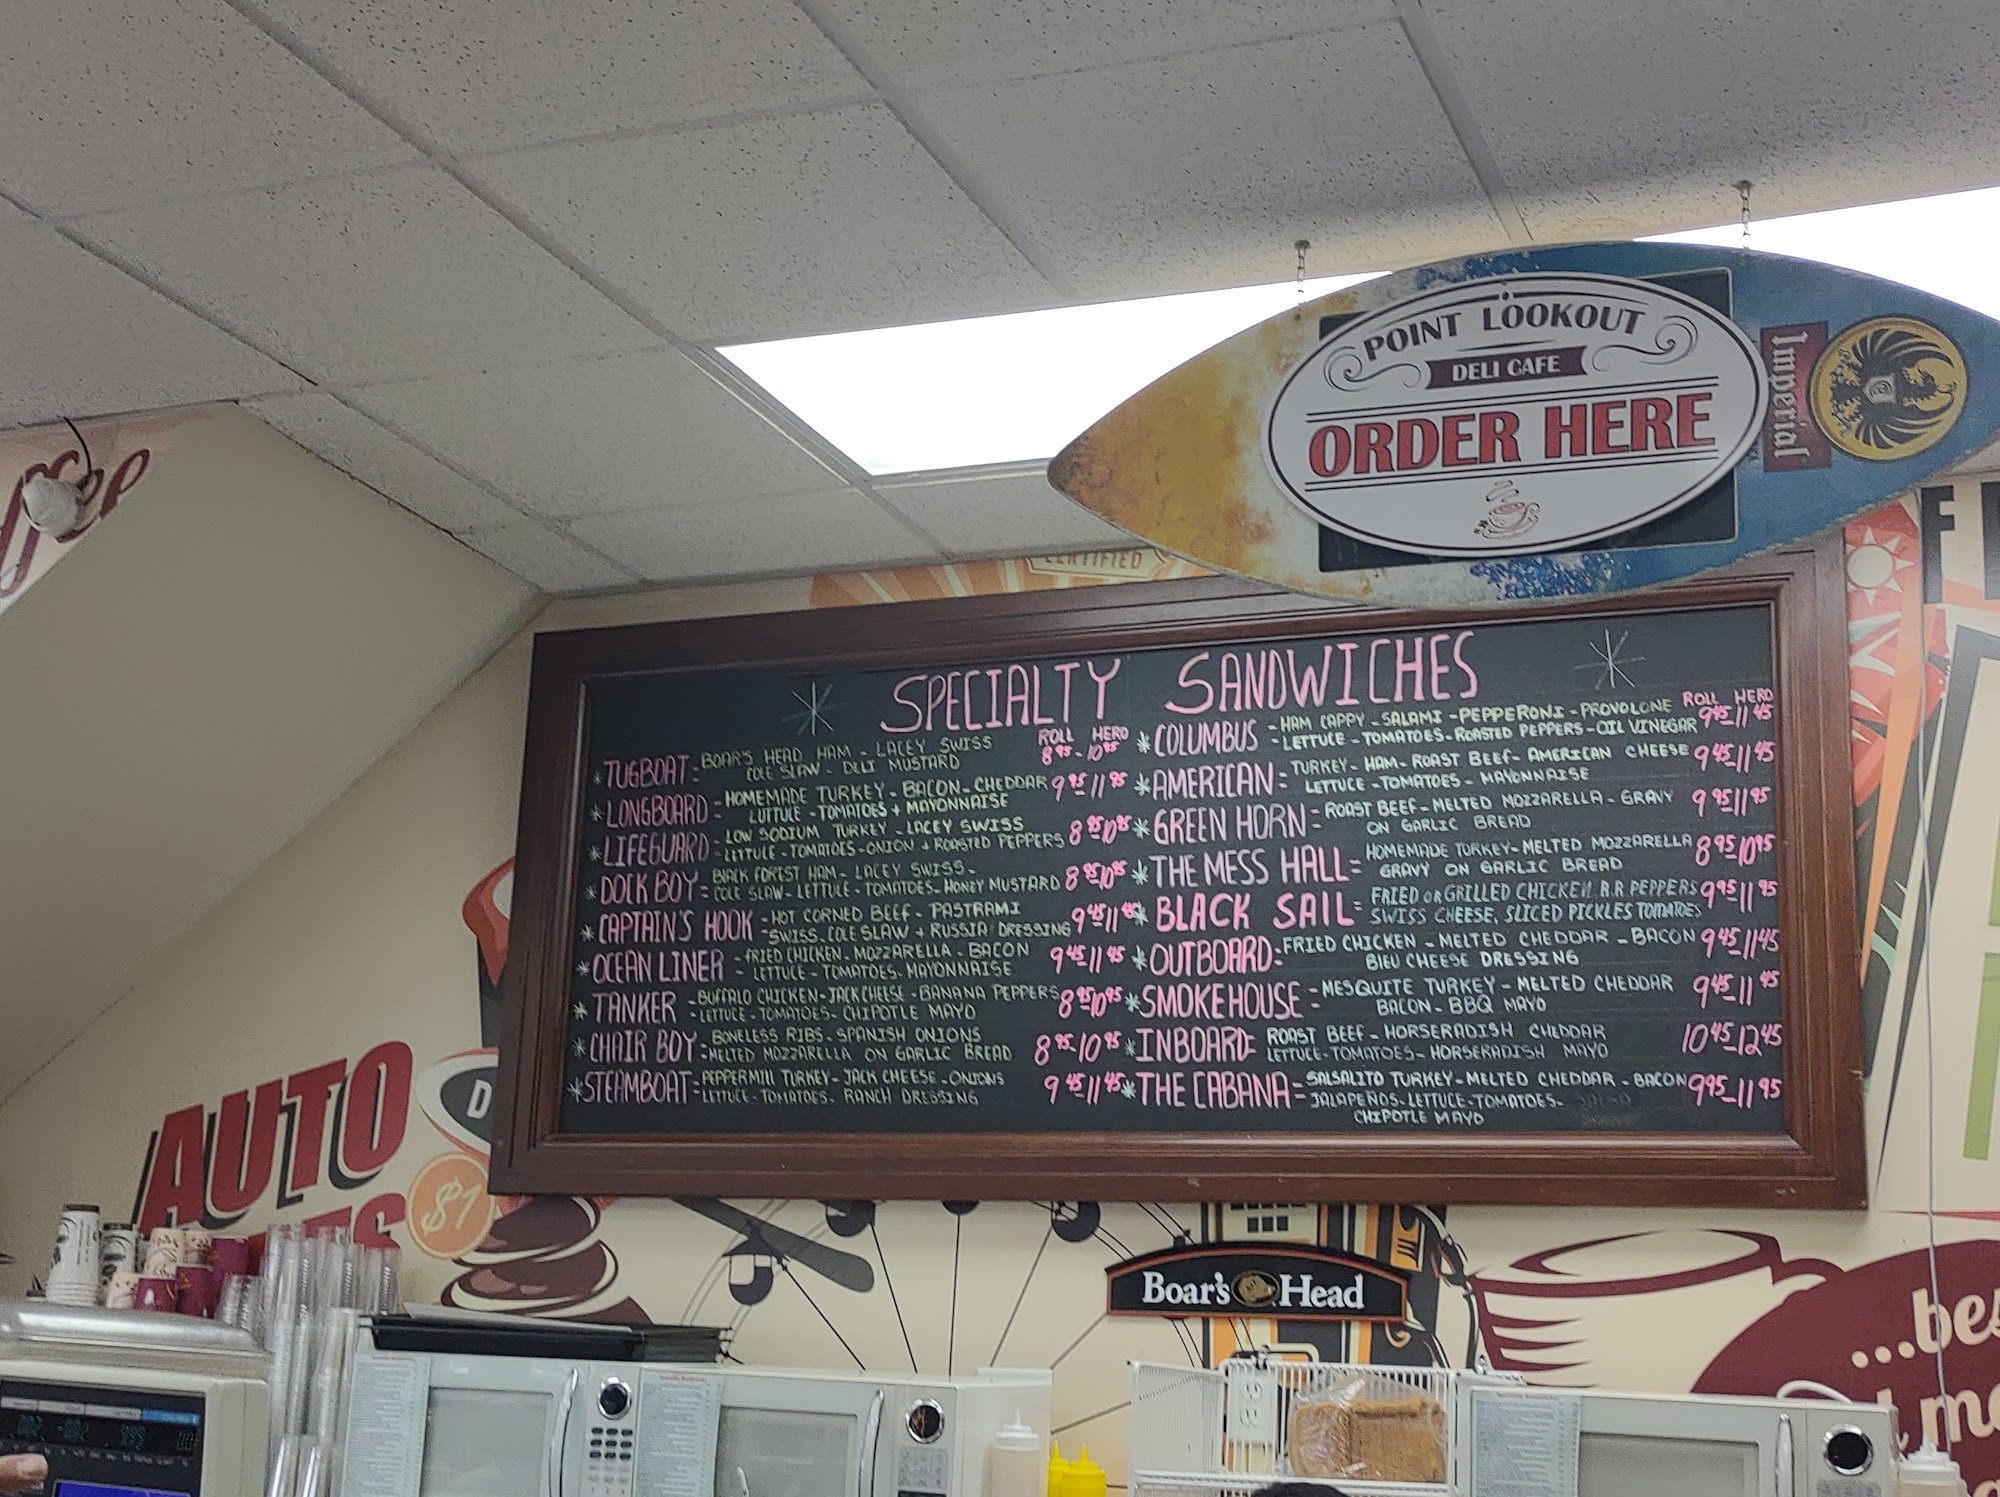 POINT LOOKOUT
DELI CAFE
ORDER HERE
Imperial
CERTIFIED
SPECIALTY SANDWICHES
ROLL HERO
*TUGBOAT- BOAR'S HEAD HAM - LACEY SWISS 8 95 - 10 95
COLE SLAW - DELI MUSTARD
*LONGBOARD - HOMEMADE TURKEY - BACON - CHEDDAR 9 95 - 11 95
LUTTUCE - TOMATOES + MAYONNAISE
*LIFEGUARD - LOW SODIUM TURKEY - LACEY SWISS 8 95 - 10 95
LETTUCE - TOMATOES - ONION + ROASTED PEPPERS
*DOCK BOY - BLACK FOREST HAM - LACEY SWISS - 8 95 - 10 95
COLE SLAW - LETTUCE - TOMATOES - HONEY MUSTARD
*CAPTAIN'S HOOK - HOT CORNED BEEF - PASTRAMI 9 45 - 11 45
SWISS - COLE SLAW + RUSSIA DRESSING
*OCEAN LINER - FRIED CHICKEN - MOZZARELLA - BACON 9 45 - 11 45
LETTUCE - TOMATOES - MAYONNAISE
*TANKER - BUFFALO CHICKEN - JACK CHEESE - BANANA PEPPERS 8 95 - 10 95
LETTUCE - TOMATOES - CHIPOTLE MAYO
*CHAIR BOY - BONELESS RIBS - SPANISH ONIONS 8 95 - 10 95
MELTED MOZZARELLA ON GARLIC BREAD
*STEAMBOAT - PEPPERMILL TURKEY - JACK CHEESE - ONIONS 9 45 - 11 45
LETTUCE - TOMATOES - RANCH DRESSING
ROLL HERO
*COLUMBUS - HAM CAPPY - SALAMI - PEPPERONI - PROVOLONE 9 45 - 11 45
LETTUCE - TOMATOES - ROASTED PEPPERS - OIL VINEGAR
*AMERICAN - TURKEY - HAM - ROAST BEEF - AMERICAN CHEESE 9 45 - 11 45
LETTUCE - TOMATOES - MAYONNAISE
*GREEN HORN - ROAST BEEF - MELTED MOZZARELLA - GRAVY 9 95 - 11 95
ON GARLIC BREAD
*THE MESS HALL - HOMEMADE TURKEY - MELTED MOZZARELLA 8 95 - 10 95
GRAVY ON GARLIC BREAD
*BLACK SAIL - FRIED OR GRILLED CHICKEN R.R PEPPERS 9 95 - 11 95
SWISS CHEESE, SLICED PICKLES TOMATOES
*OUTBOARD - FRIED CHICKEN - MELTED CHEDDAR - BACON 9 45 - 11 45
BLEU CHEESE DRESSING
*SMOKEHOUSE - MESQUITE TURKEY - MELTED CHEDDAR 9 45 - 11 45
BACON - BBQ MAYO
*INBOARD - ROAST BEEF - HORSERADISH CHEDDAR 10 45 - 12 45
LETTUCE - TOMATOES - HORSERADISH MAYO
*THE CABANA - SALSALITO TURKEY - MELTED CHEDDAR - BACON 9 95 - 11 95
JALAPEÑOS - LETTUCE - TOMATOES - SALSA
CHIPOTLE MAYO
AUTO
$1
Boar's Head
...bes